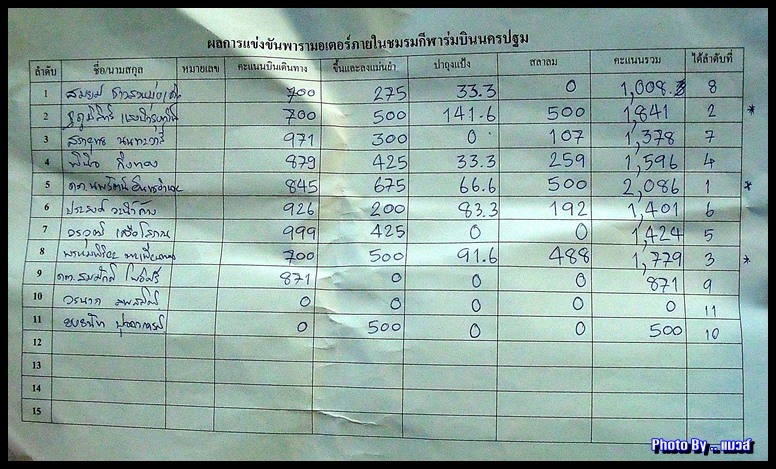 ผลการแข่งขันพารามอเตอร์ภายในชมรมกีฬาร่มบินนครปฐม
ลำดับ ชื่อ/นามสกุล หมายเลข คะแนนบินเดินทาง ขึ้นและลงแม่นยำ ปาถุงแป้ง สลาลม คะแนนรวม ได้ลำดับที่
1 700 275 33.3 0 1,008.3 8
2 700 500 141.6 500 1,841 2 *
3 971 300 0 107 1,378 7
4 879 425 33.3 259 1,596 4
5 845 675 66.6 500 2,086 1 *
6 926 200 83.3 192 1,401 6
7 999 425 0 0 1,424 5
8 700 500 91.6 488 1,779 3 *
9 871 0 0 0 871 9
10 0 0 0 0 0 11
11 0 500 0 0 500 10
12
13
14
15
Photo By ...แมวส์